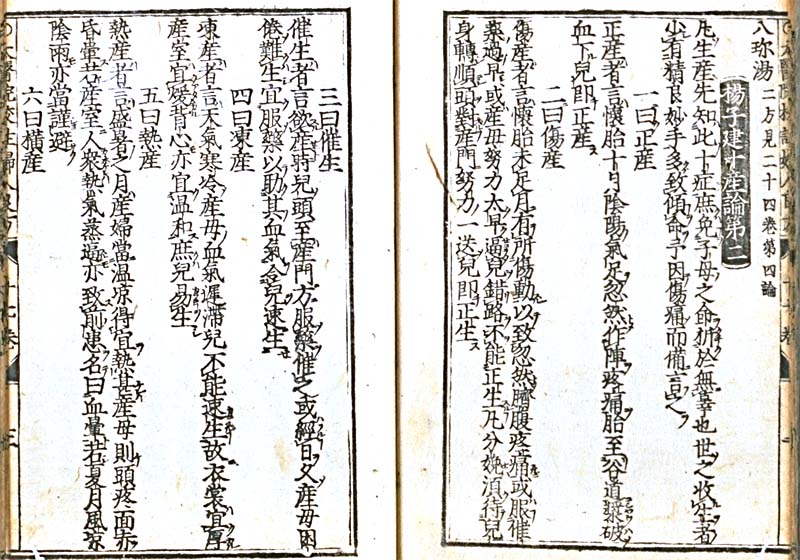 八珍湯 二方見二十四卷第四論
楊子建十産論第二
凡生産先知此十症庶免子母之命折於無辜也世之收生者
少有精良妙手多致傾命予因傷痛而備言之
一曰正産
正産者言懷胎十月陰陽氣足忽然作陣疼痛胎至谷道漿破
血下兒即正産
二曰傷産
傷産者言懷胎未足月有所傷動以致忽然臍腹疼痛或服催
藥過早或産母努力太早逼兒錯路不能正生凡分娩湏待兒
身轉順頭對産門努力一送兒即正生
三曰催生
催生者言欲産時兒頭至産門方服藥催之或經日久産母困
倦難生宜服藥以助其血氣令兒速生
四曰凍産
凍産者言天氣寒冷産母血氣遲滯兒不能速生故衣裳宜厚
産室宜煖背心亦宜温和庶兒易生
五曰熱産
熱産者言盛暑之月産婦當温凉得宜熱甚産母則頭疼面赤
昏暈若産室人衆熱氣蒸逼亦致前患名曰血暈若夏月風凉
陰雨亦當謹避
六曰橫産